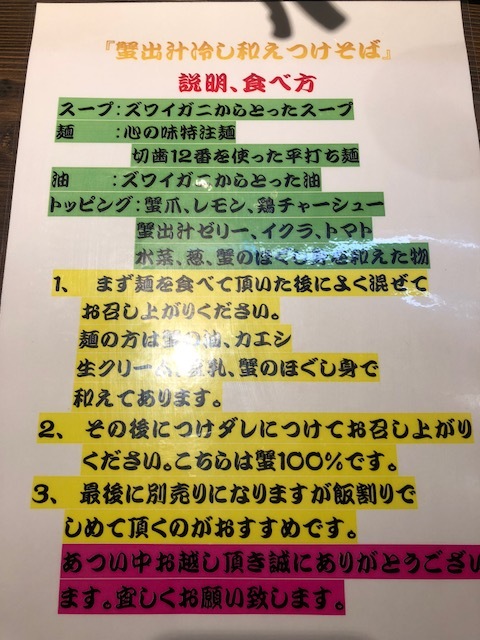 『蟹出汁冷し和えつけそば』
説明、食べ方
スープ：ズワイガニからとったスープ
麺　　：心の味特注麺
切歯12番を使った平打ち麺
油　　：ズワイガニからとった油
トッピング：蟹爪、レモン、鶏チャーシュー
蟹出汁ゼリー、イクラ、トマト
水菜、葱、蟹のほぐし身を和えた物
1、　まず麺を食べて頂いた後によく混ぜて
お召し上がりください。
麺の方は蟹の油、カエシ
生クリーム、乳、蟹のほぐし身で
和えてあります。
2、　その後につけダレにつけてお召し上がり
ください。こちらは蟹100％です。
3、　最後に別売りになりますが飯割りで
しめて頂くのがおすすめです。
あつい中お越し頂き誠にありがとうござい
ます。宜しくお願い致します。